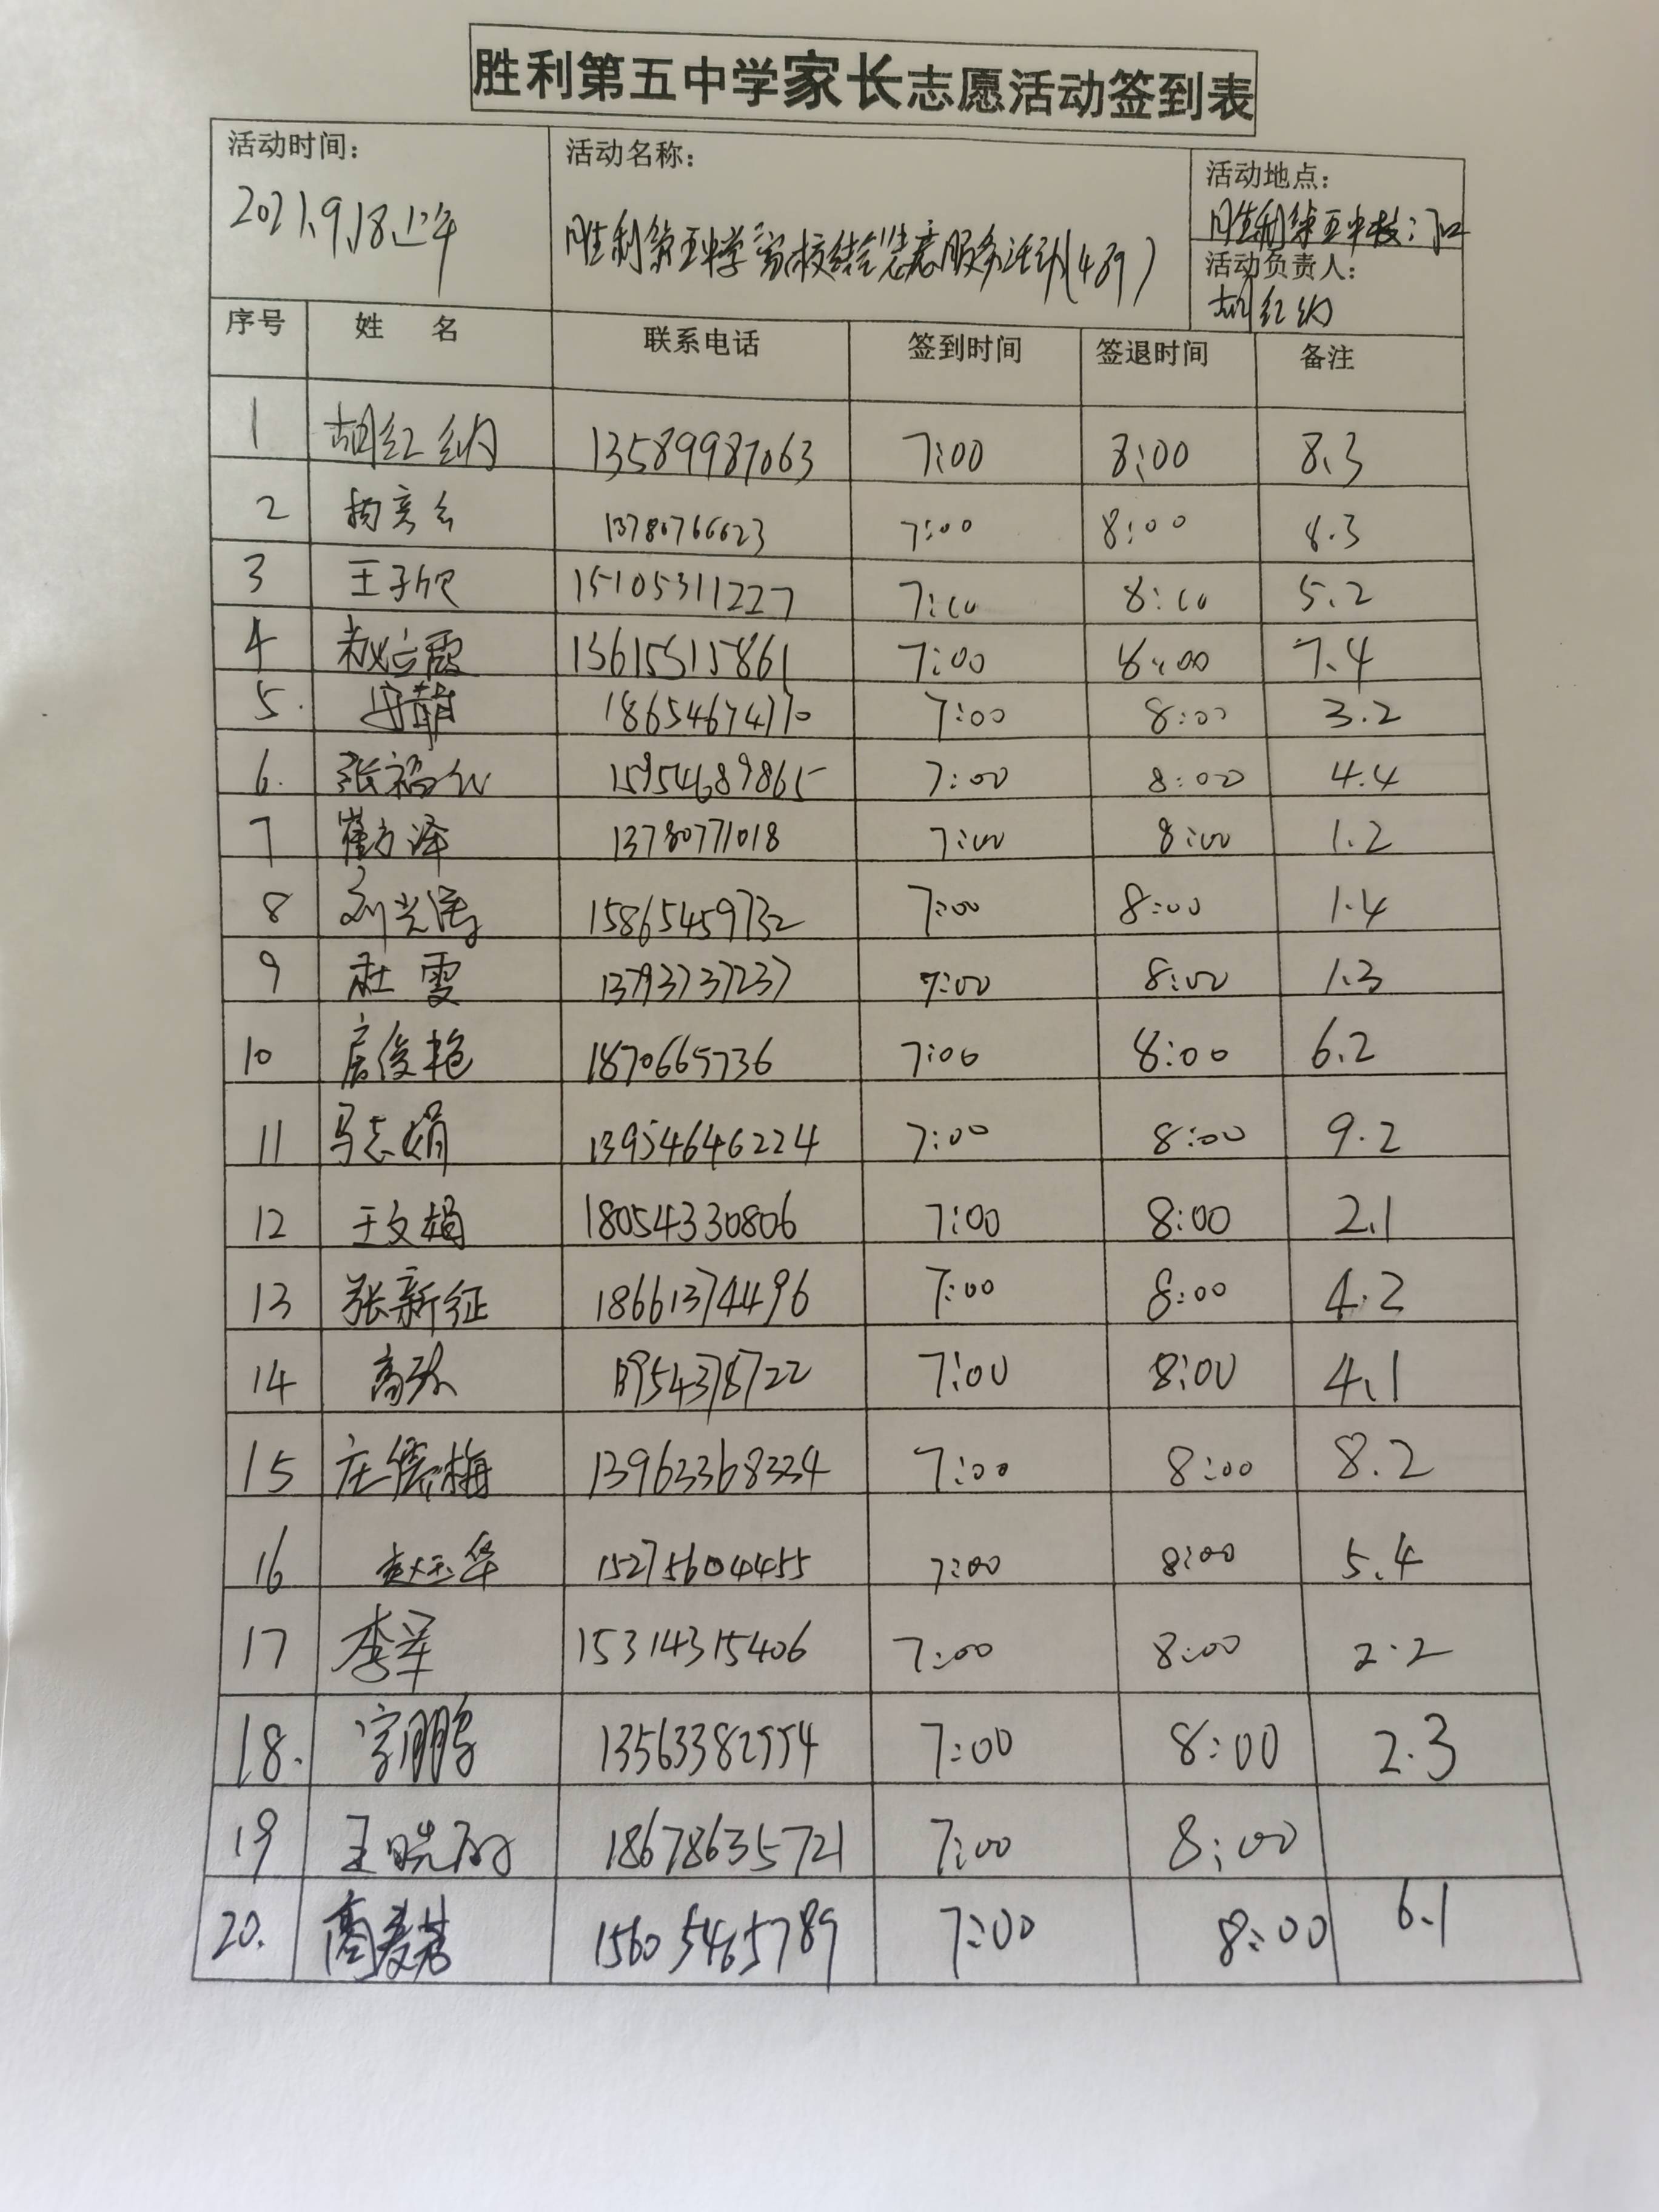 胜利第五中学家长志愿活动签到表
活动时间：
2021.9.18上午
活动名称：
胜利第五中学"家校结合"志愿服务活动(439)
活动地点：
胜利第五中校门口
活动负责人：
胡红纳
序号 姓 名 联系电话 签到时间 签退时间 备注
1 胡红纳 13589987063 7:00 8:00 8.3
2 13780766623 7:00 8:00 8.3
3 王子欣 15105311227 7:00 8:00 5.2
4 赵立霞 13615315861 7:00 8:00 7.4
5. 18654674770 7:00 8:00 3.2
6. 张福 15954689865 7:00 8:00 4.4
7 崔方泽 13780771018 7:00 8:00 1.2
8 刘光涛 15865459732 7:00 8:00 1.4
9 杜雯 13793737237 7:00 8:00 1.3
10 扈俊艳 1870665736 7:00 8:00 6.2
11 马志娟 13954646224 7:00 8:00 9.2
12 王文娟 18054330806 7:00 8:00 2.1
13 张新征 18661374496 7:00 8:00 4.2
14 高 13954378722 7:00 8:00 4.1
15 庄德梅 13963368334 7:00 8:00 8.2
16 赵玉华 15275604455 7:00 8:00 5.4
17 李军 15314315406 7:00 8:00 2.2
18. 鹏 13563382554 7:00 8:00 2.3
19 王晓 18678635721 7:00 8:00
20. 15605465789 7:00 8:00 6.1